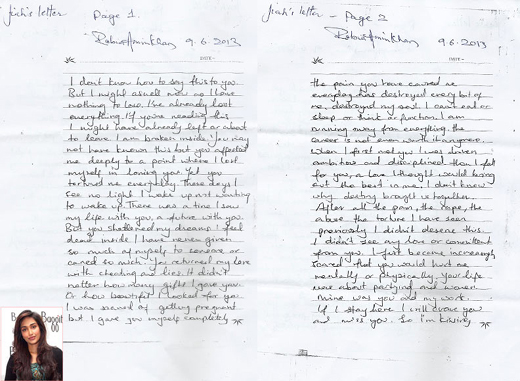 Jiah's letter
Page 1.
Rabia Amin Khan
9.6.2013
DATE:
I dont know how to say this to you
But I might as well now as I have
nothing to lose. I've already lost
everything. If you're reading this
I might have already left or about
to leave. I am broken inside. You may
not have known this but you affected
me deeply to a point where I lost
myself in loving you. Yet you
tortured me everyday. These days I
see no light I wake up not wanting
to wake up. There was a time I saw
my life with you, a future with you.
But you shattered my dreams I feel
dead inside I have never given
so much of myself to someone or
cared so much. You returned my love
with cheating and lies. It didn't
matter how many gifts I gave you.
Or how beautiful I looked for you.
I was scared of getting pregnant
but I gave you myself completely
Jiah's letter - Page 2
Rabia Amin Khan
9.6.2013
DATE:
the pain you have caused me
everyday has destroyed every bit of
me, destroyed my soul. I can't eat or
sleep or think or function. I am
running away from everything. The
career is not even worth it anymore.
When I first met you I was driven
ambitious and disciplined. Then I fell
for you, a love I thought would bring
out the best in me. I don't know
why destiny brought us together.
After all the pain, the rape, the
abuse the torture I have seen
previously I didn't deserve this.
I didn't see any love or commitment
from you. I just became increasingly
scared that you would hurt me
mentally or physically. Your life
was about partying and women.
Mine was you and my work.
If I stay here I will crave you
and miss you. So I'm kissing
Baggit